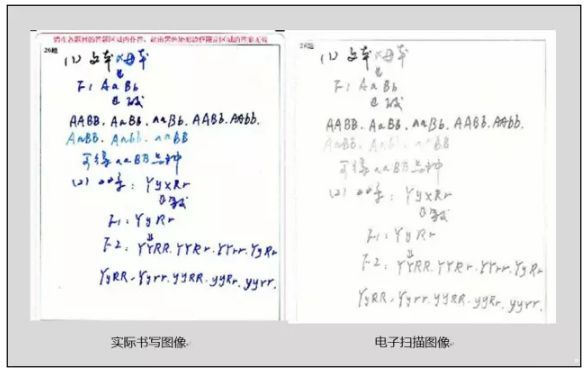 请在各题目的答题区域内作答，超出黑色矩形边框限定区域的答案无效
26题
(1) 父本×母本
↓
F1 AaBb
AABB. AaBb. aaBb. AABb. AAbb.
AaBB. Aabb. aaBB
可得aaBB品种
(2) YyxRr
F1: YyRr
↓
F2: YYRR. YYRr. YYrr. YyRr
YyRR. Yyrr. yyRR. yyRr. yyrr.
26题
(1) 父本×母本
↓
F1 AaBb
AABB. AaBb. aaBb. AABb. AAbb.
AaBB. Aabb. aaBB
可得aaBB品种
(2) YyxRr
F1: YyRr
↓
F2: YYRR. YYRr. YYrr. YyRr
YyRR. Yyrr. yyRR. yyRr. yyrr.
实际书写图像
电子扫描图像